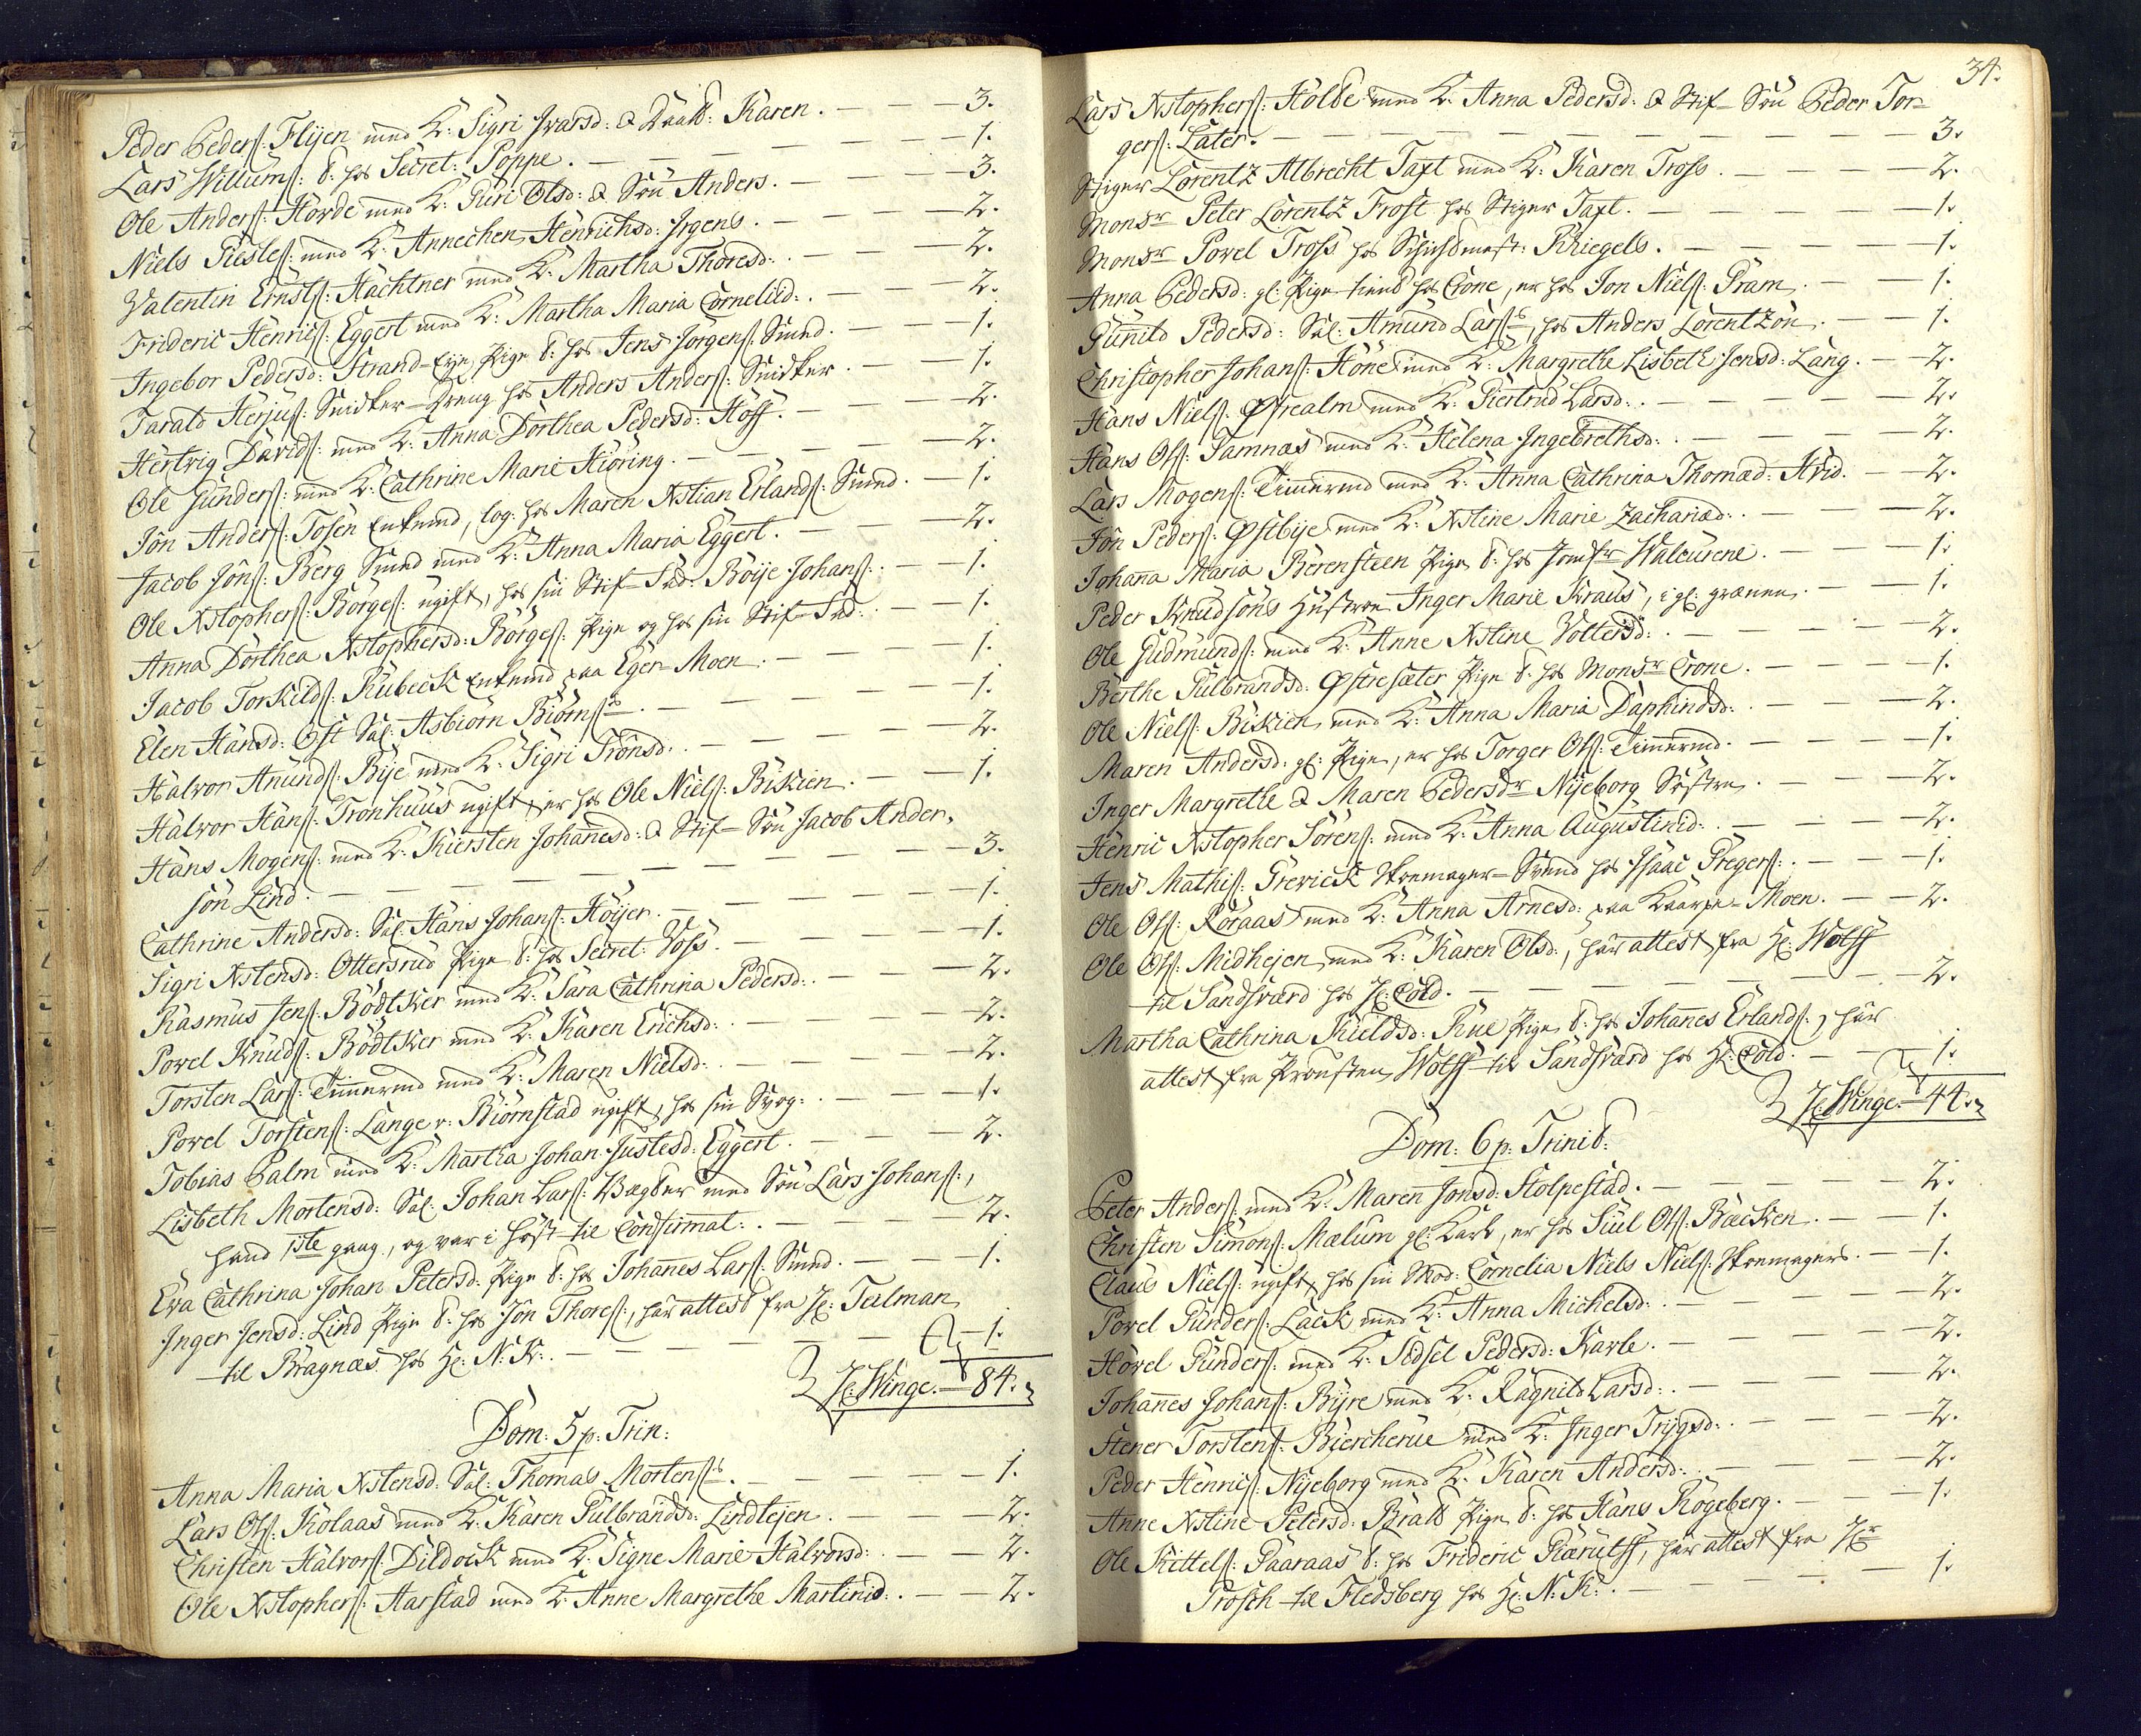 Peder Peders: Flijen med K: Sigri Ivarsd: & Daatt: Karen. — 3.
Lars Willums: t: hos Secret: Poppe. — 1.
Ole Anders: Horde med K: Guri Olsd: & Søn Anders. — 3.
Niels Giesles: med K: Annechen Henrichsd: Irgens. — 2.
Valentin Ernsts: Hachtner med K: Martha Thoresd: . — 2.
Frideric Henrics: Eggert med K: Martha Maria Cornelisd: . — 2.
Ingebor Pedersd: Strand-Eije Pige t: hos Jens Jørgens: Smed. — 1.
Tarald Herjus: Snidker-Dreng hos Anders Anders: Snidker. — 1.
Hertvig Davids: med K: Anna Dorthea Pedersd: Hoff. — 2.
Ole Gunders: med K: Cathrine Marie Hiøring. — 2.
Jon Anders: Tosen Enkemd, log: hos Maren Xstian Erlands: Smed. — 1.
Jacob Jons: Berg Smed med K: Anna Maria Eggert. — 2.
Ole Xstophers: Børges: ugift, hos sin Stif-Fad: Børje Johans: . — 1.
Anna Dorthea Xstophersd: Børges: Pige og hos sin Stif-Fad: . — 1.
Jacob Torkilds: Rubeck Enkemd paa Eger-Moen. — 1.
Elen Hansd: Øst Sal: Asbiørn Biørns: — 1.
Halvor Amunds: Bije med K: Sigri Tronsd: . — 2.
Halvor Hans: Tronhuus ugift, er hos Ole Niels: Biskien. — 1.
Hans Mogens: med K: Kiersten Johanesd: & Stif-Søn Jacob Ander-
søn Lind. — 3.
Cathrine Andersd: Sal: Hans Johans: Høijer. — 1.
Sigri Xstensd: Ottersrud Pige t: hos Secret: Voss. — 1.
Rasmus Jens: Bødtker med K: Sara Cathrina Pedersd: . — 2.
Povel Knuds: Bødtker med K: Karen Erichsd: . — 2.
Torsten Lars: Timmermd med K: Maren Nielsd: . — 2.
Povel Torstens: Lange v: Biørnstad ugift, hos sin Svog: . — 1.
Tobias Palm med K: Martha Johan Justesd: Eggert. — 2.
Lisbeth Mortensd: Sal: Johan Lars: Vægter med Søn Lars Johans: ,
hand 1ste gang, og var i Høst til Confirmat: . — 2.
Eva Cathrina Johan Petersd: Pige t: hos Johannes Lars: Smed. — 1.
Inger Jensd: Lind Pige t: hos Jon Thores: , har attest fra H: Teilman
til Bragnæs hos H: N: K: . — 1.
H: Winge. — 84.
Dom: 5 p: Trin:
Anna Maria Xstensd: Sal: Thomas Mortens: — 1.
Lars Ols: Kolaas med K: Karen Gulbrandsd: Lindlejen. — 2.
Christen Halvors: Dildock med K: Signe Marie Halvorsd: . — 2.
Ole Xstophers: Aarstad med K: Anne Margrethe Martinid: . — 2.
34.
Lars Xstophers: Holde med K: Anna Pedersd: & Stif-Søn Peder Tor-
gers: Later. — 3.
Stiger Lorentz Albrecht Taxt med K: Karen Tross. — 2.
Monsr Peter Lorentz Frost hos Stiger Taxt. — 1.
Monsr Povel Tross hos Schichtmest: Kriegels. — 1.
Anna Pedersd: gl: Pige tient hos Crone, er hos Jon Niels: Pram. — 1.
Gunild Pedersd: Sal: Amund Lars: , hos Anders Lorentzøn. — 1.
Christopher Johans: Høne med K: Margrethe Lisbeth Jensd: Lang. — 2.
Hans Niels: Øfrealm med K: Giertrud Larsd: . — 2.
Hans Ols: Jamnæs med K: Helena Ingebrethsd: . — 2.
Lars Mogens: Timmermd med K: Anna Cathrina Thomæd: Hvid. — 2.
Jon Peders: Østbije med K: Xstine Marie Zachariæd: . — 2.
Johana Maria Berensteen Pige t: hos Jomfr Walcurene. — 1.
Peder Knudsøns Hustrue Inger Marie Kraus, i gl: grænen. — 1.
Ole Gudmunds: med K: Anne Xstine Voltersd: . — 2.
Berthe Gulbrandsd: Østresæter Pige t: hos Monsr Crone. — 1.
Ole Niels: Biskien, med K: Anna Maria Daphindsd: . — 2.
Maren Andersd: gl: Pige, er hos Torger Ols: Timmermd. — 1.
Inger Margrethe & Maren Pedersdr Nijeborg Søstre. — 2.
Henric Xstopher Sørens: med K: Anna Augustinid: . — 2.
Jens Mathis: Grevick Skomager-Svend hos Isaac Gregers: . — 1.
Ole Ols: Røraas med K: Anna Arnesd: paa Kaarpe-Moen. — 2.
Ole Ols: Midhejen, med K: Karen Olsd: , har attest fra H: Wolff
til Sandsværd hos H: Cold. — 2.
Martha Cathrina Kieldsd: Rue Pige t: hos Johannes Erlands: , har
attest fra Provsten Wolff til Sandsværd hos H: Cold. — 1.
H: Winge. — 44.
Dom: 6 p: Trinit:
Peter Anders: med K: Maren Jonsd: Stolpestad. — 2.
Christen Simons: Mælum gl: Karl, er hos Siul Ols: Backen. — 1.
Claus Niels: ugift, hos sin Mod: Cornelia Niels Niels: Skomagers. — 1.
Povel Gunders: Lack med K: Anna Michelsd: . — 2.
Hovel Gunders: med K: Sidsel Pedersd: Karle. — 2.
Johannes Johans: Bijre med K: Ragnild Larsd: . — 2.
Stener Torstens: Biercherüe med K: Inger Trijgsd: . — 2.
Peder Henrics: Nijeborg med K: Karen Andersd: . — 2.
Anne Xstine Petersd: Bratt Pige t: hos Hans Rogeberg. — 1.
Ole Kittels: Paaraas t: hos Frideric Karulff, har attest fra Hr
Frosch til Fledsberg hos H: N: K: . — 1.